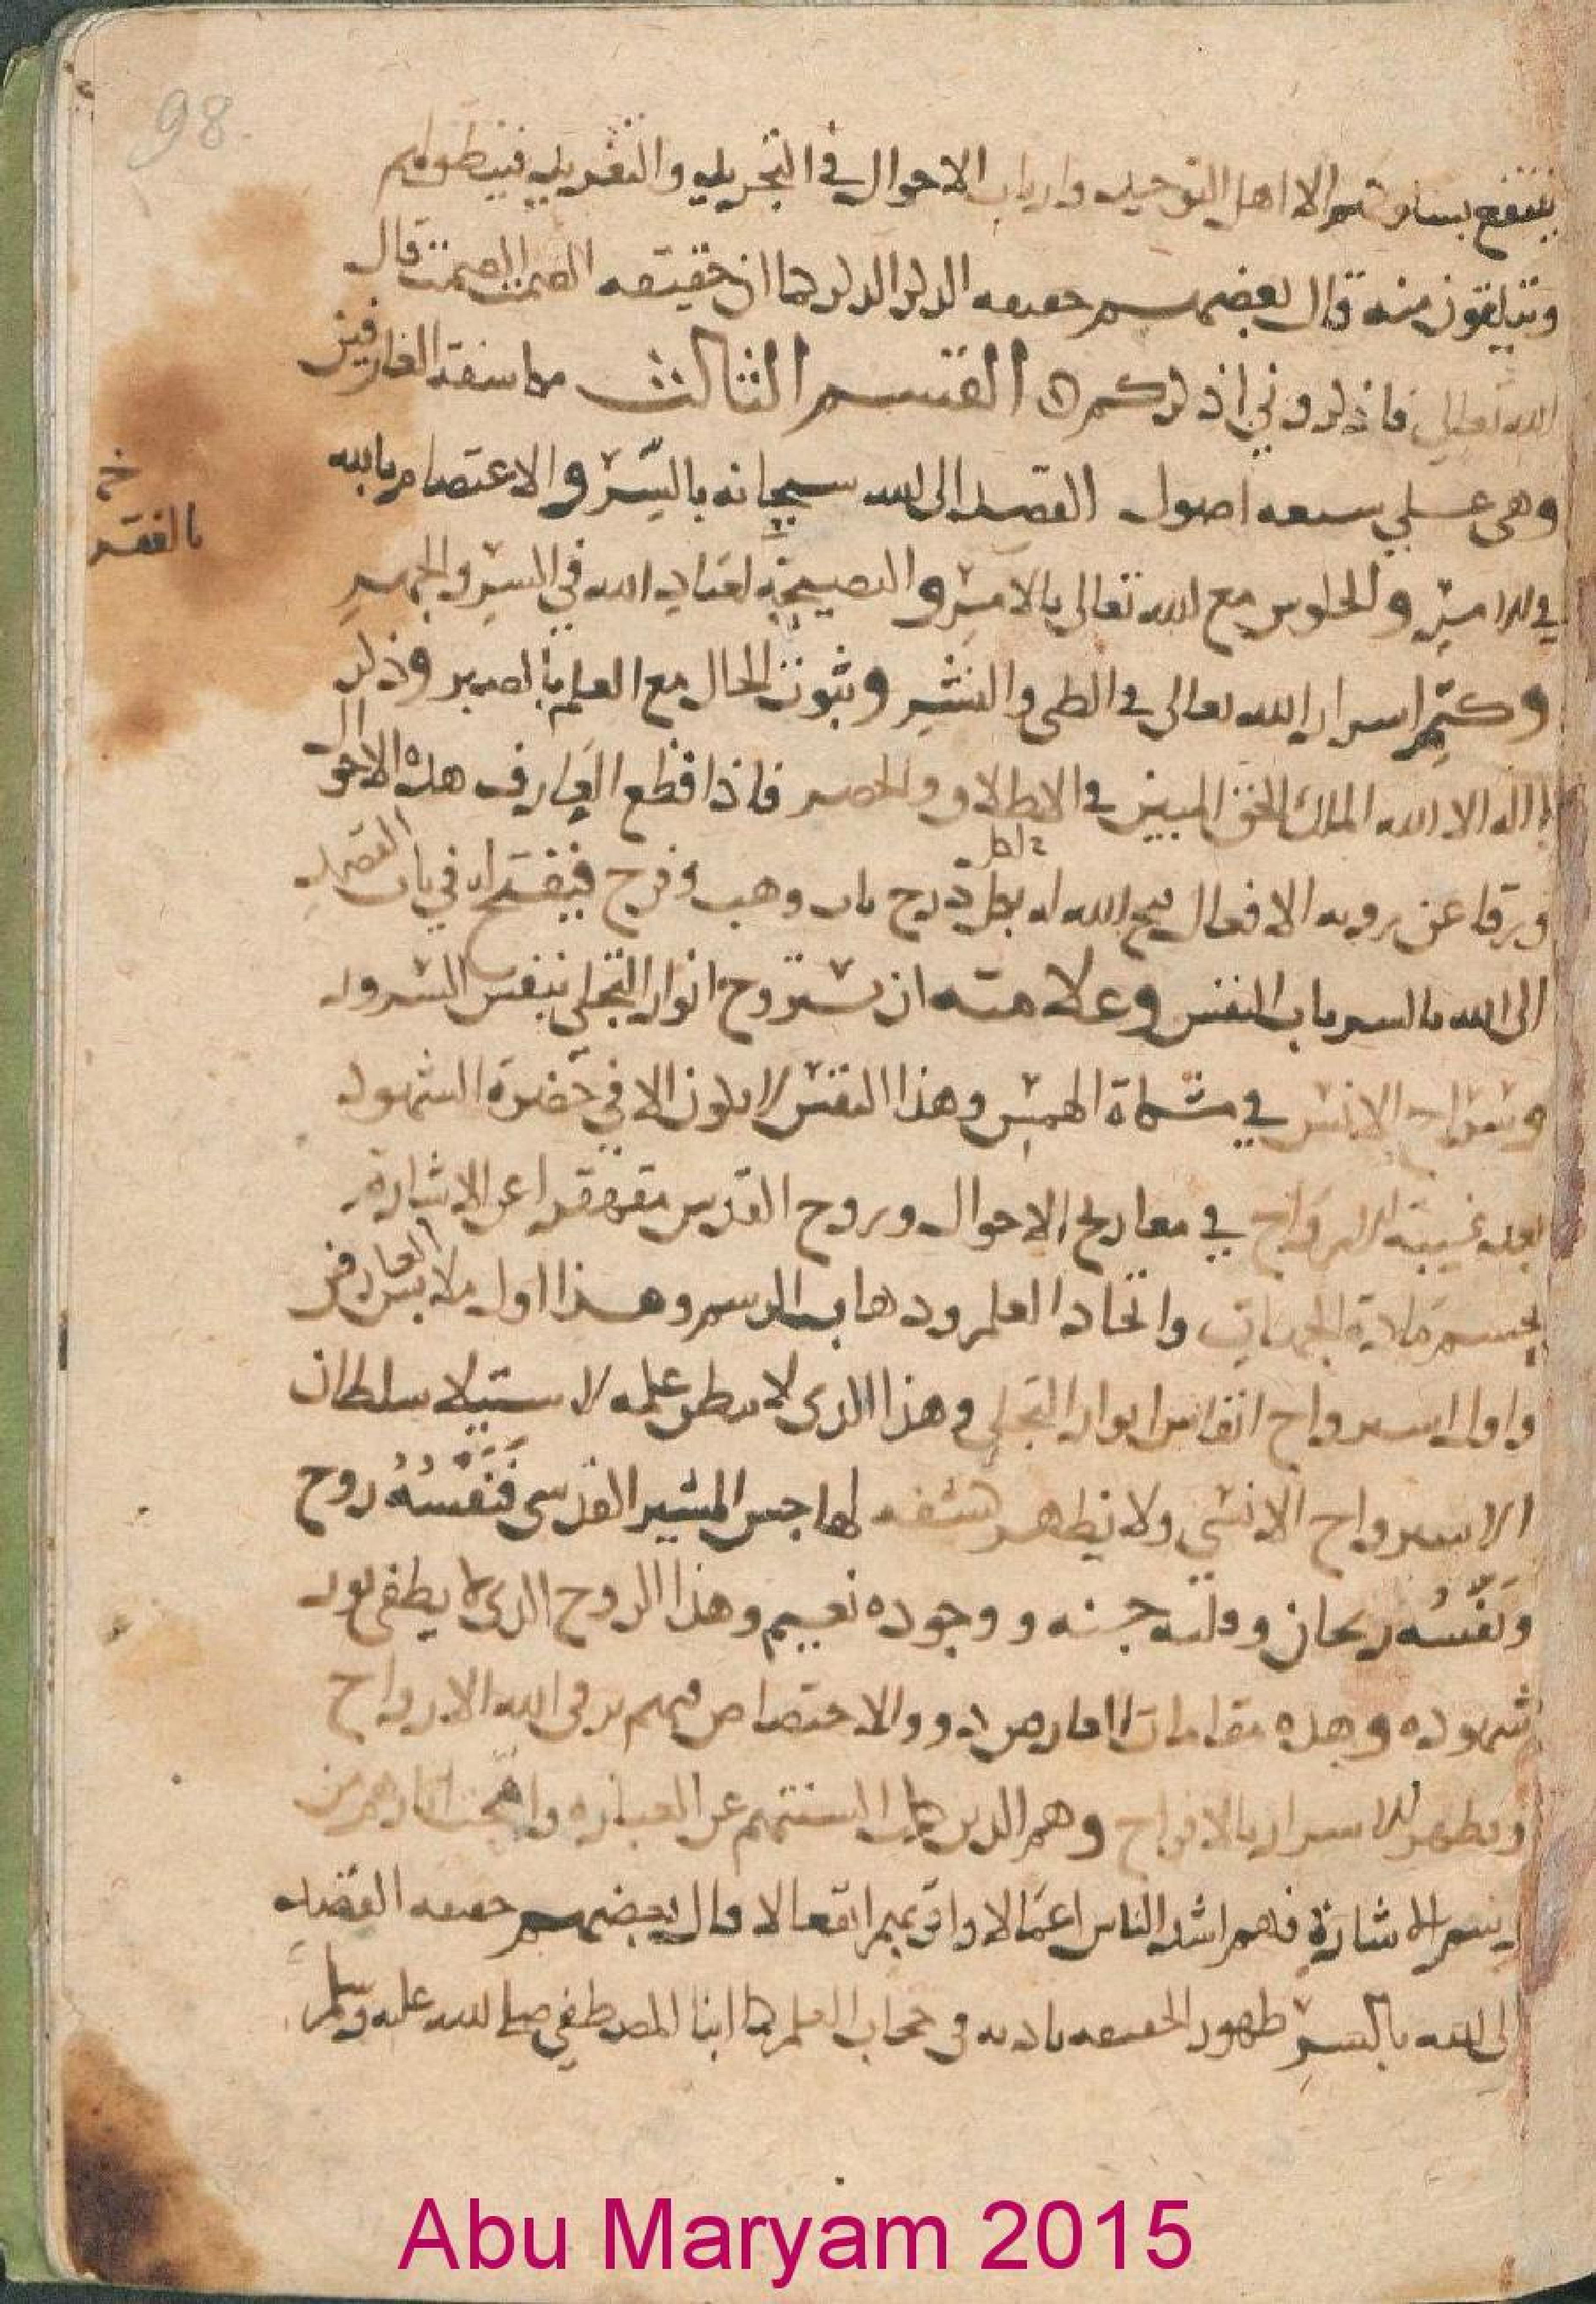 98
ينتفع بسلوكهم الا اهل التوحيد وارباب الاحوال في التجريد والتفريد
ويتلقون منه قال بعضهم حقيقه الذكر الذكر كما ان حقيقه الصمت الصمت قال
الله تعالى فاذكروني اذكركم القسم الثالث مكاشفة العارفين
وهي علي سبعه اصول القصد الى الله سبحانه بالسر والاعتصام بالله
خ
بالفقر
في الامر والجلوس مع الله تعالى بالامر والنصيحة لعباد الله في السر والجهر
وكتم اسرار الله تعالى في الطي والنشر وثبوت الحال مع العلم بالصبر وذكر
لا اله الا الله الملك الحق المبين في الاطلاق والحصر فاذا قطع العارف هذه الاحوال
وترقا عن رويه الافعال فتح الله له بكل درج باب وهب وفرج فيفتح له في باب القصد
الى الله بالسر باب النفس وعلامته ان يستروح انوار التجلي بنفس السرور
الانس في مشكاة الهمس وهذا النفس لا يكون الا في حضرة الشهود
بعد غيبة الارواح في معاريج الاحوال وروح القدس متقهقرا عن الاشارة
بحسم مادة الجهات واتحاد العلم وذهاب الرسم وهذا اول ملابس العارفين
واول استرواح انفاس انوار التجلي وهذا الذي لا ينطق علمه لاستيلا سلطان
الاسترواح الانسي ولا يظهر كشفه لهاجس المشير القدسي فنفسه روح
ونفسه ريحان وقلبه جنه ووجوده نعيم وهذا الروح الذي لا يطفى نور
شهوده وهذه مقامات العارفين ذوو الاختصاص فبهم يرقي الله الارواح
ويظهر الاسرار بالافراح وهم الذين كلت السنتهم عن العباره وامتحت اثارهم من
رسم الاشارة فهم اشد الناس اعمالا واقربهم افعالا قال بعضهم حقيقه القصد
الى الله بالسر ظهور الحقيقه باديه في حجاب العلم كما انبا المصطفي صلى الله عليه وسلم
Abu Maryam 2015